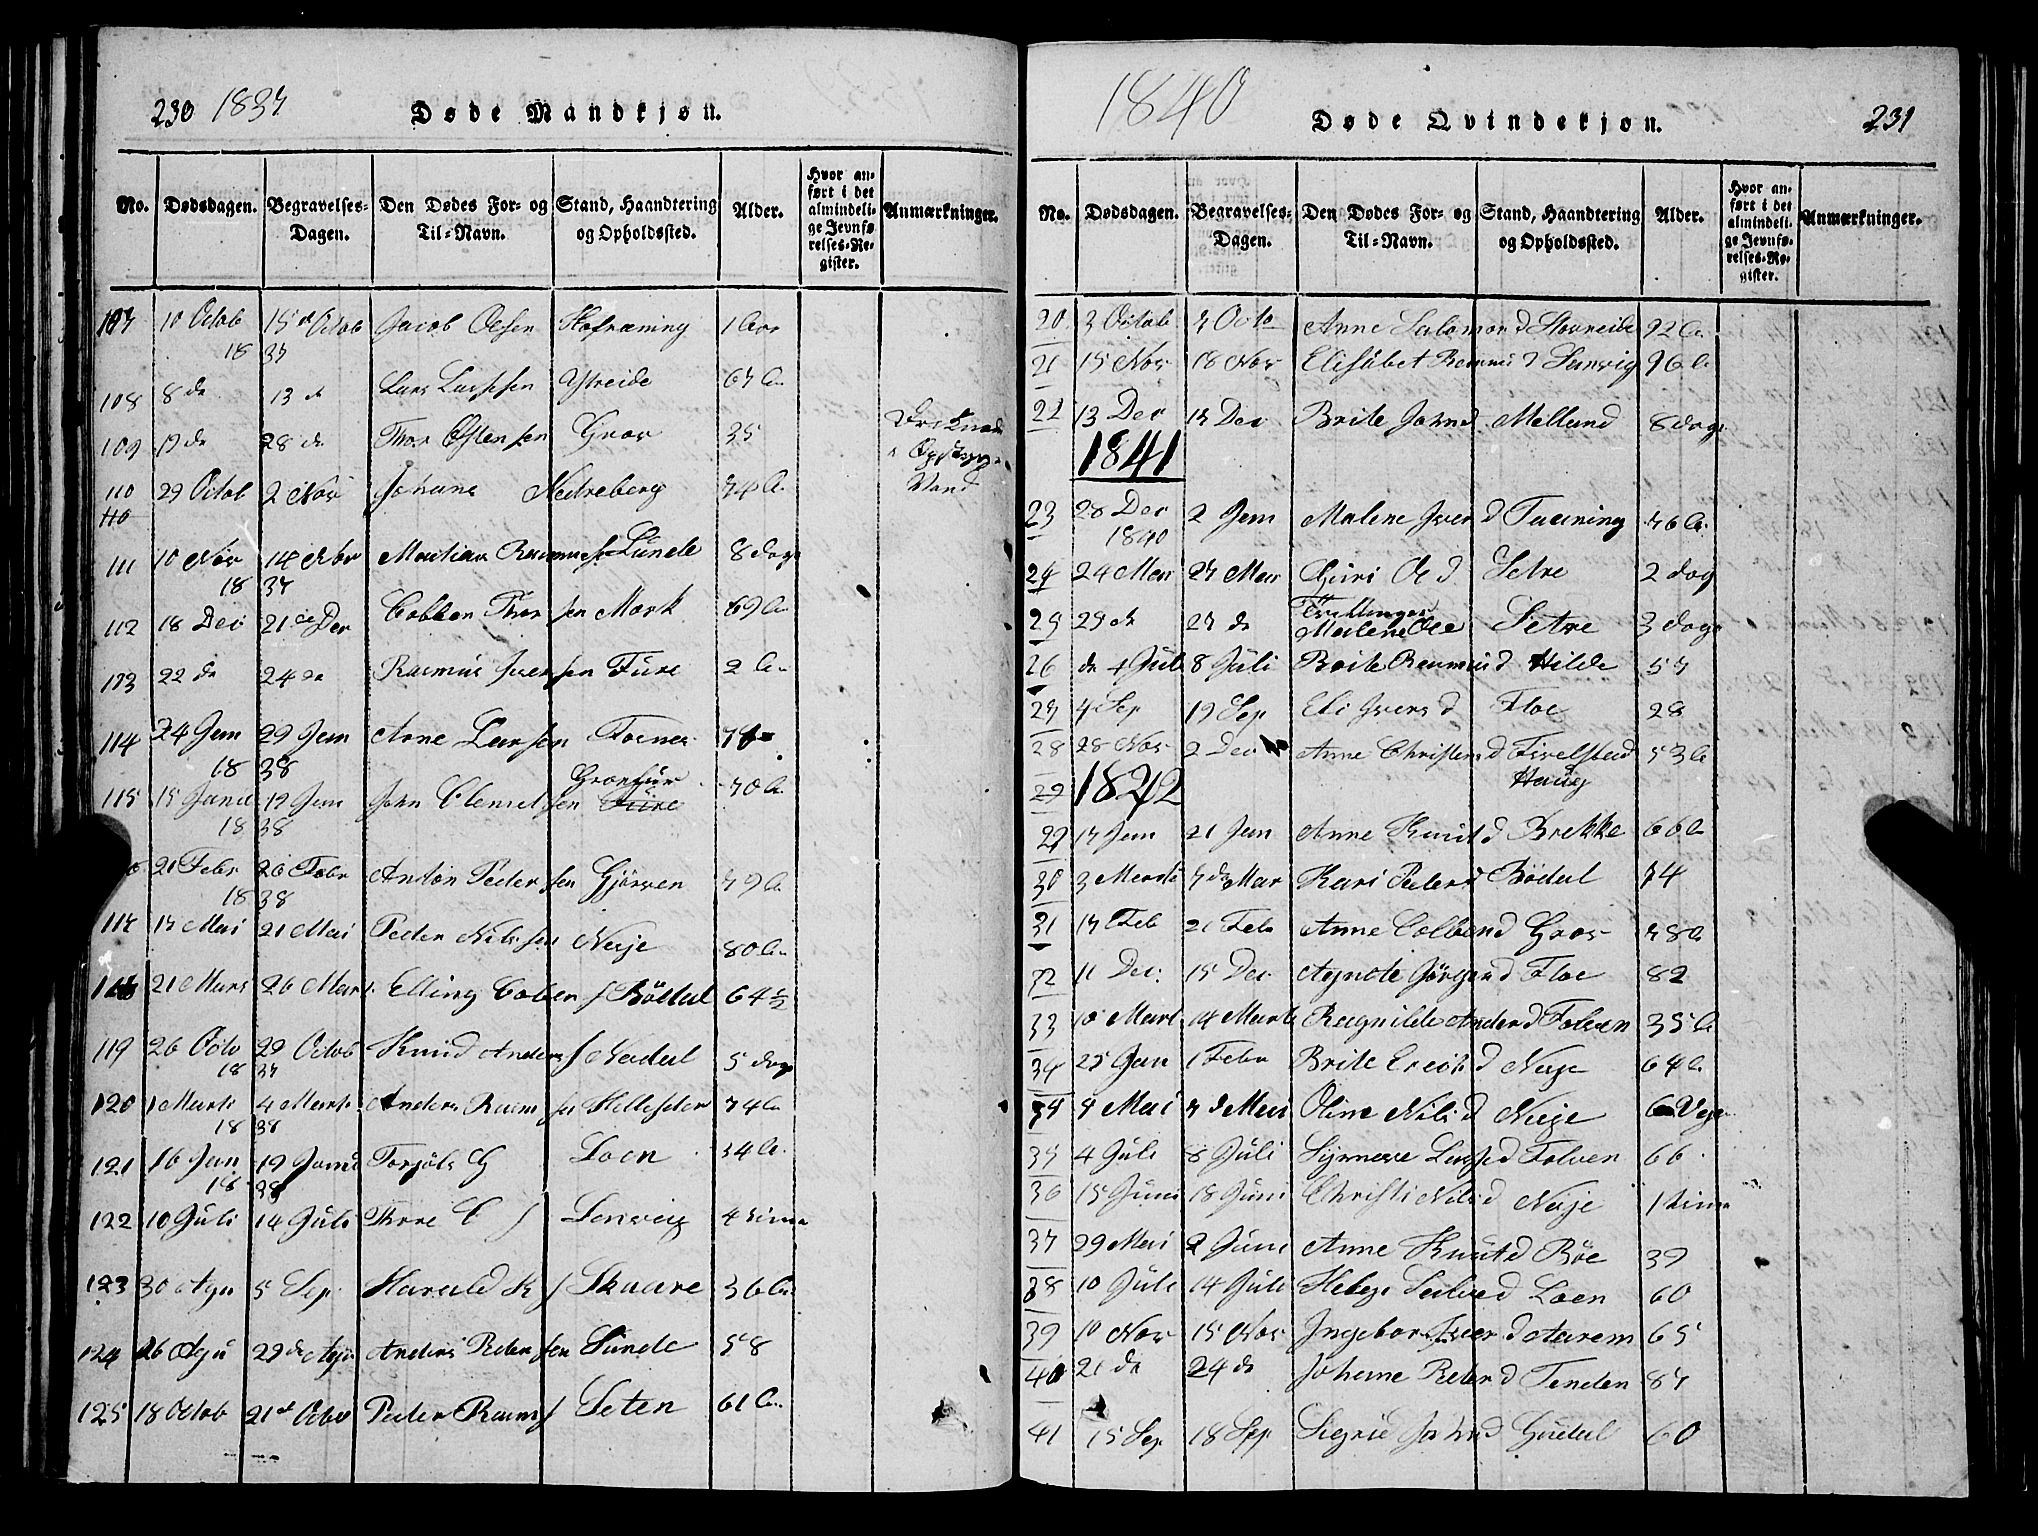 230 1837 Døde Mandkjøn.
No. Dødsdagen. Begravelses-Dagen. Den Dødes For- og Til-Navn. Stand, Haandtering og Opholdssted. Alder. Hvor anført i det almindelige Jevnførelses-Register. Anmærkninger.
107 10 Octob 15 d Octob Jacob Olsen 1 Aar
18 37
108 8 de 13 d Lars Larssen Ytreide 67 A
109 19 de 28 de Thor Ostensen Grov 35
110 29 Octob 2 Nov Johans Nedreberg 74 A. Vand
110
111 10 Nov 14 Nov Mathias Rasmus s Sunde 8 dage
18 37
112 18 Dec 21 de Dec Colben Thor sen Mork 69 A
113 22 de 24 de Rasmus Iver sen Fure 2 A
114 24 Jan 29 Jan Arne Larsen
18 38
115 15 Janu 19 Jan John Clemet sen Fure 70 A
18 38
21 Febr 26 Febr Anton Peder sen Gjørven 79 A
18 38
117 17 Mai 21 Mai Peder Nilssen Nesje 80 A
118 21 Mars 26 Mars Elling Coben s Bødal 64 ½
119 26 Octo 29 Octob Knud Anders s Nesdal 5 dage
18 37
120 1 Marts 4 Marts Anders Rasm sen Hellesether 74 A
18 38
121 16 Jan 19 Janu Loen 34 A.
18 38
122 10 Juli 14 Juli Thore C s 4 time
123 30 Agu 5 Sep Harald K s Skaare 36 A
124 26 Agu 29 de Agu Anders Peder sen Sunde 58
125 18 Octob 21 d Octo Peder Rasm s Seten 61 A.
1840 Døde Qvindekjøn. 231
No. Dødsdagen. Begravelses-Dagen. Den Dødes For- og Til-Navn. Stand, Haandtering og Opholdssted. Alder. Hvor anført i det almindelige Jevnførelses-Register. Anmærkninger.
20 3 Octob 7 Octo Anne Salomon d 92 A
21 15 Nov 18 Nov Elisabet Rasmus d 76 A
22 13 Dec 17 Dec Brite John d Melland 8 dage
1841
23 28 Dec 2 Jan Malene Iver d Tuening 76 A
1840
24 24 Mai 27 Mai Guri O d Setre 2 dag
Trillinger
25 25 d 27 d Malene Ole Setre 3 dage
26 de 4 Juli 8 Juli Brite Rasmus d Hilde 57
27 4 Sep 19 Sep Eli Ivers d Floe 28
28 28 Nov 2 Dec Anne Christen d Fivelstad 53 A
Haug
29 1842
29 17 Jan 21 Jan Anne Knud d Brekke 66 A
30 3 Marts 7 de Mar Kari Peder d Bødal 74
31 17 Feb 21 Feb Anne Colben d Grov 78 A
32 11 Dec 15 Dec Agnote Jörgen d Floe 82
33 10 Mart 14 Mart Ragnilde Ander d Folven 35 A
34 25 Jan 1 Febr Brite Erick d Nesje 64 A
34 4 Mai 7 d Mai Oline Nils d Nesje 6 Uge
35 4 Juli 8 Juli Synneve Lasse d Folven 66
36 15 Juni 18 Juni Christi Nils d Nesje 1 time
37 29 Mai 2 Juni Anne Knut d Bøe 39
38 10 Juli 14 Juli Loen 60
39 10 Nov 15 Nov Ingebor Iver d Aarem 65
40 21 de 24 d Johanne Peder d Tenden 87
41 15 Sep 18 Sep Sigrid John d Gudal 60